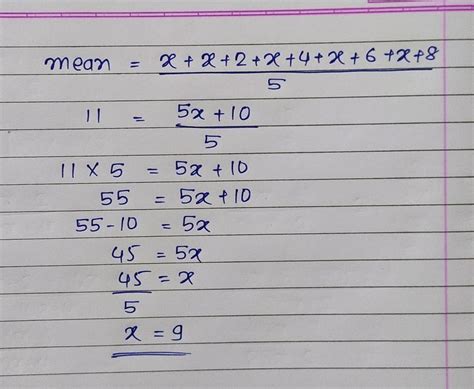 mean = x + x + 2 + x + 4 + x + 6 + x + 8 / 5
11 = 5x + 10 / 5
11 × 5 = 5x + 10
55 = 5x + 10
55 - 10 = 5x
45 = 5x
45 / 5 = x
x = 9